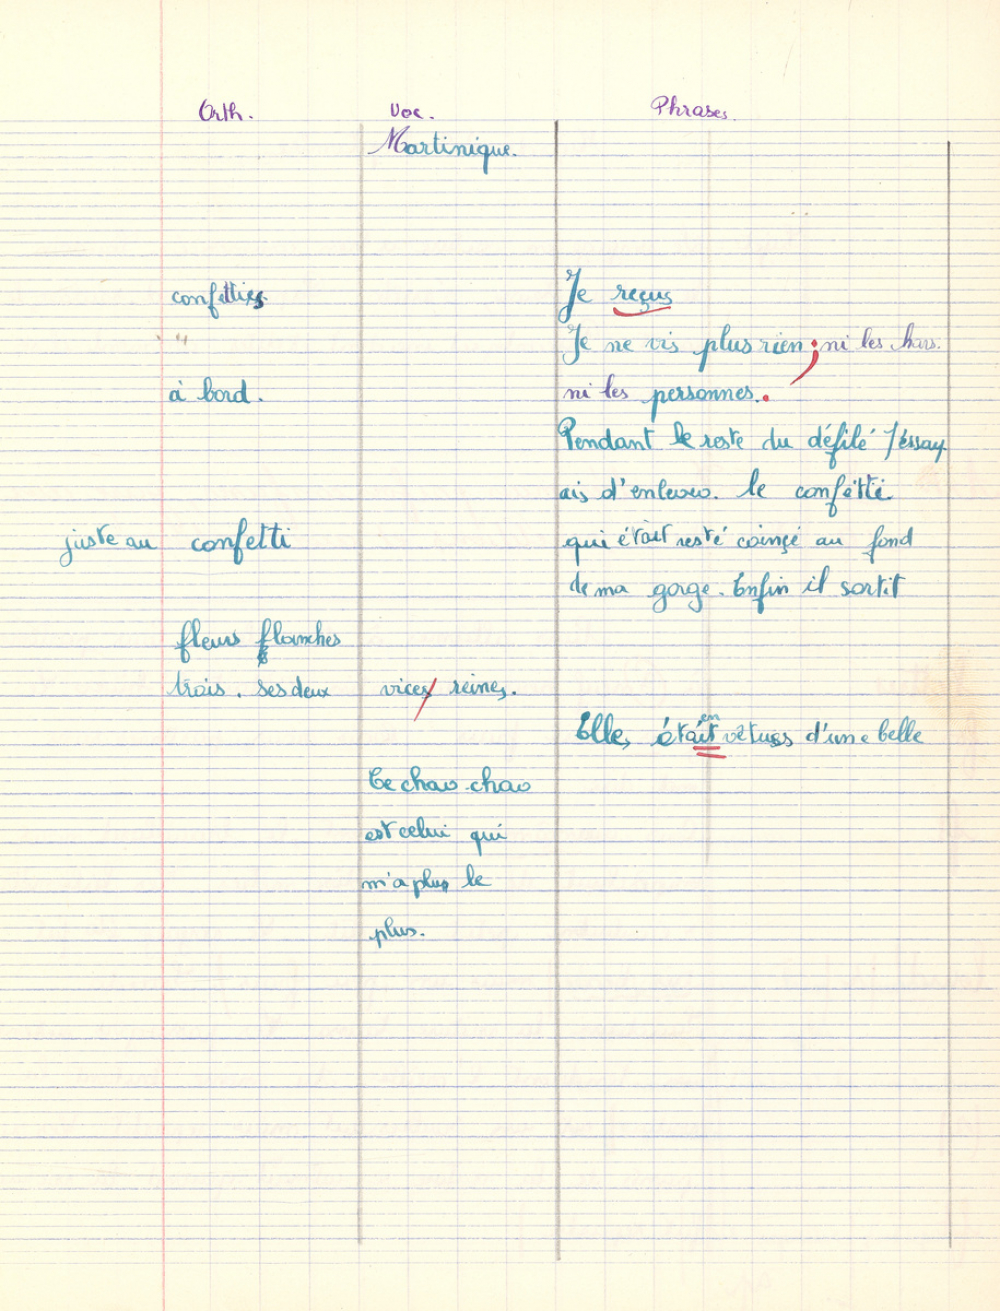 Orth. Voc. Phrases.
Martinique.
confettis Je reçus
" Je ne vis plus rien ; ni les chars.
à bord. ni les personnes.
Pendant le reste du défilé j'éssay
ais d'enlever. le confetti
juste au confetti qui était resté coinçé au fond
de ma gorge. Enfin il sortit
fleurs blanches
trois. ses deux vices reines.
Elles était en vêtues d'une belle
Ce chao-chao
est celui qui
m'a plus le
plus.